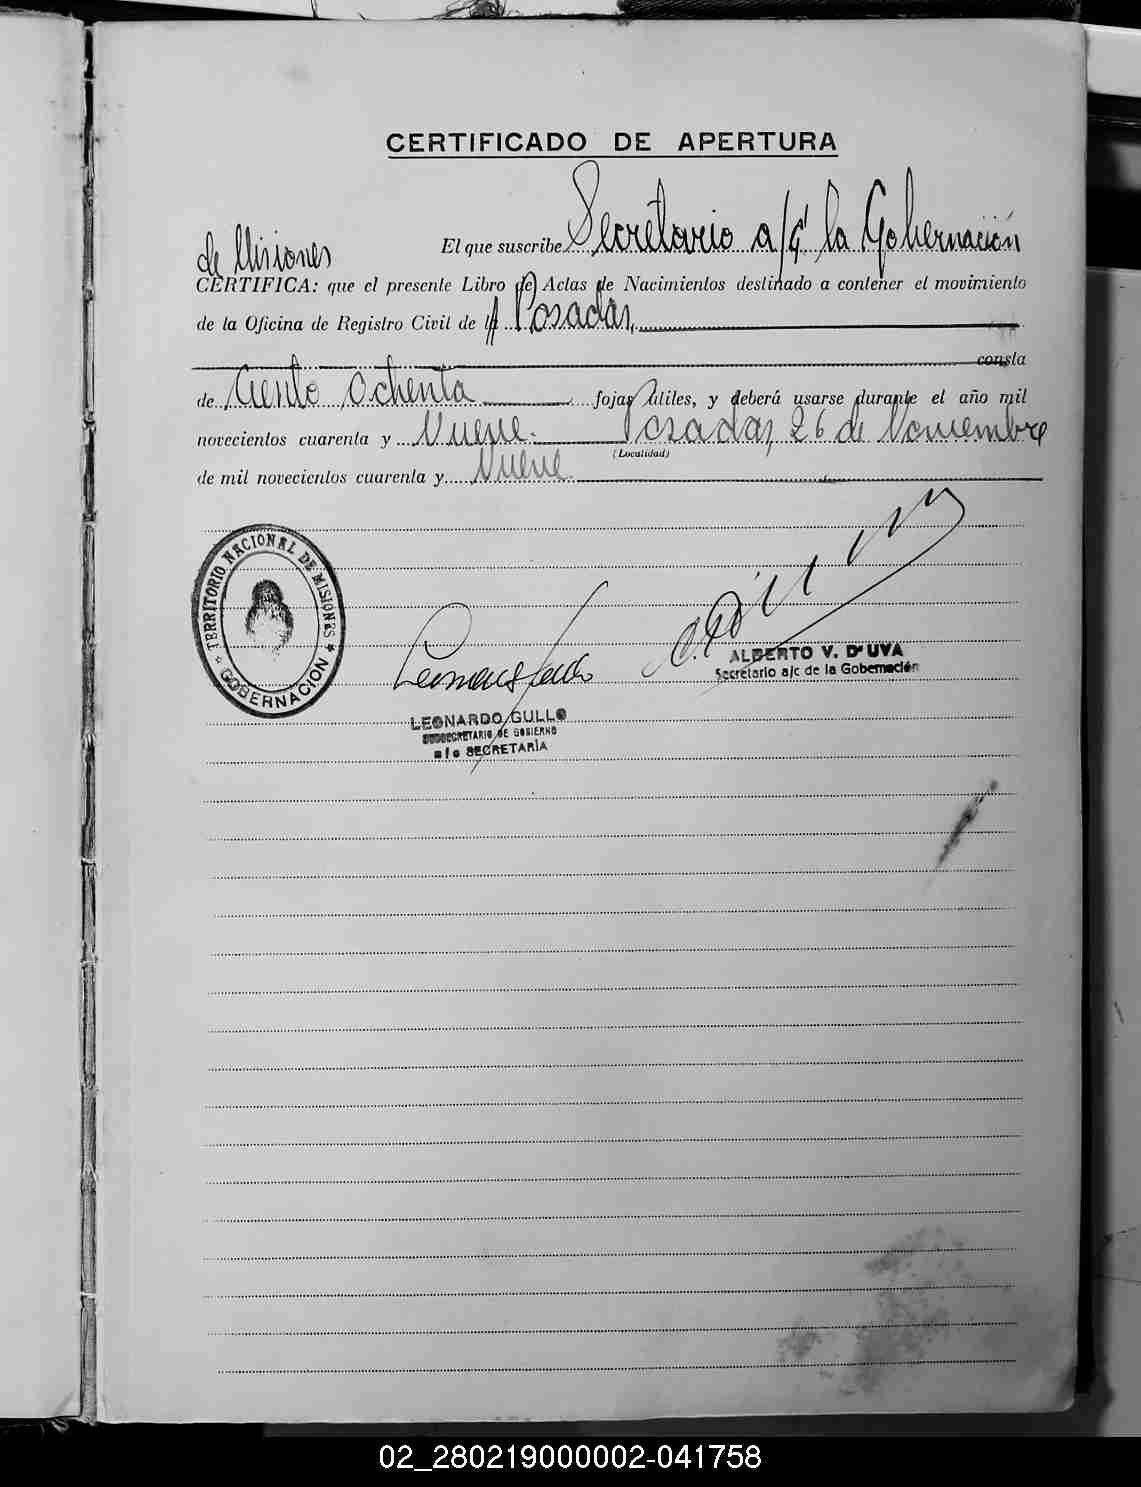 CERTIFICADO DE APERTURA
El que suscribe Secretario a/c' la Gobernación
de Misiones
CERTIFICA: que el presente Libro de Actas de Nacimientos destinado a contener el movimiento
de la Oficina de Registro Civil de Posadas,
consta
de Ciento Ochenta fojas útiles, y deberá usarse durante el año mil
novecientos cuarenta y Nueve. Posadas, 26 de Noviembre
(Localidad)
de mil novecientos cuarenta y Nueve
TERRITORIO NACIONAL DE MISIONES
GOBERNACION
ALBERTO V. D'UVA
Secretario a/c de la Gobernación
LEONARDO GULLO
SUBSECRETARIO DE GOBIERNO
a/c SECRETARÍA
02_280219000002-041758